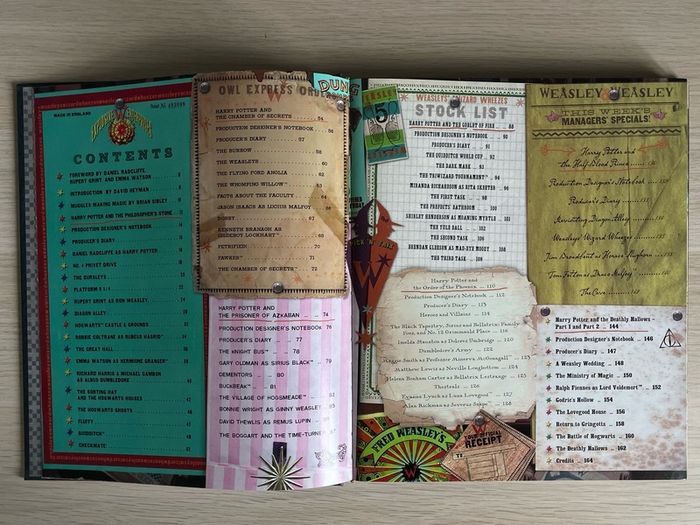 MADE IN ENGLAND
CONTENTS
FOREWORD BY DANIEL RADCLIFFE,
RUPERT GRINT AND EMMA WATSON
INTRODUCTION BY DAVID HEYMAN
MUGGLES MAKING MAGIC BY BRIAN SIBLEY
HARRY POTTER AND THE PHILOSOPHER'S STONE
PRODUCTION DESIGNER'S NOTEBOOK
PRODUCER'S DIARY
DANIEL RADCLIFFE AS HARRY POTTER
NO. 4 PRIVET DRIVE
THE DURSLEYS
PLATFORM 9 3/4
RUPERT GRINT AS RON WEASLEY
DIAGON ALLEY
HOGWARTS CASTLE & GROUNDS
ROBBIE COLTRANE AS RUBEUS HAGRID
THE GREAT HALL
EMMA WATSON AS HERMIONE GRANGER
RICHARD HARRIS & MICHAEL GAMBON
AS ALBUS DUMBLEDORE
THE SORTING HAT
AND THE HOGWARTS HOUSES
THE HOGWARTS GHOSTS
FLUFFY
QUIDDITCH
CHECKMATE!
OWL EXPRESS
HARRY POTTER AND
THE CHAMBER OF SECRETS ... 54
PRODUCTION DESIGNER'S NOTEBOOK ... 56
PRODUCER'S DIARY ... 57
THE BURROW ... 58
THE WEASLEYS ... 60
THE FLYING FORD ANGLIA ... 62
THE WHOMPING WILLOW ... 63
FACTS ABOUT THE FACULTY ... 64
JASON ISAACS AS LUCIUS MALFOY
DOBBY
KENNETH BRANAGH AS
GILDEROY LOCKHART
PETRIFIED! ... 70
FAWKES ... 71
THE CHAMBER OF SECRETS ... 72
HARRY POTTER AND
THE PRISONER OF AZKABAN ... 74
PRODUCTION DESIGNER'S NOTEBOOK 76
PRODUCER'S DIARY ... 77
THE KNIGHT BUS ... 78
GARY OLDMAN AS SIRIUS BLACK ... 79
DEMENTORS ... 80
BUCKBEAK ... 81
THE VILLAGE OF HOGSMEADE ... 82
BONNIE WRIGHT AS GINNY WEASLEY
DAVID THEWLIS AS REMUS LUPIN
THE BOGGART AND THE TIME-TURNER
DUNG
WEASLEYS' WIZARD WHEEZES
STOCK LIST
HARRY POTTER AND THE GOBLET OF FIRE ... 88
PRODUCTION DESIGNER'S NOTEBOOK ... 90
PRODUCER'S DIARY ... 91
THE QUIDDITCH WORLD CUP ... 92
THE DARK MARK ... 93
THE TRIWIZARD TOURNAMENT
MIRANDA RICHARDSON AS RITA SKEETER
THE FIRST TASK ... 98
THE PREFECTS' BATHROOM ... 200
SHIRLEY HENDERSON AS MOANING MYRTLE
THE YULE BALL
THE SECOND TASK ... 106
BRENDAN GLEESON AS MAD-EYE MOODY
THE THIRD TASK
5
Harry Potter and
the Order of the Phoenix ... 110
Production Designer's Notebook ... 112
Producer's Diary ... 113
Heroes and Villains ... 114
The Black Tapestry, Sirius and Bellatrix: Family
Foes, and No. 12 Grimmauld Place
Imelda Staunton as Dolores Umbridge
Dumbledore's Army
Maggie Smith as Professor Minerva McGonagall
Matthew Lewis as Neville Longbottom
Helena Bonham Carter as Bellatrix Lestrange
Thestrals ... 126
Evanna Lynch as Luna Lovegood
Alan Rickman as Severus Snape ... 128
FRED WEASLEY'S
YOUR OFFICIAL
RECEIPT
WEASLEY & WEASLEY
THIS WEEK'S
MANAGERS' SPECIALS!
Harry Potter and
the Half-Blood Prince
Production Designer's Notebook
Producer's Diary
Weasleys' Wizard Wheezes
Jim Broadbent as Horace Slughorn
Tom Felton as Draco Malfoy
The Cave
Harry Potter and the Deathly Hallows –
Part 1 and Part 2 ... 144
Production Designer's Notebook ... 146
Producer's Diary ... 147
A Weasley Wedding ... 148
The Ministry of Magic ... 150
Ralph Fiennes as Lord Voldemort ... 152
Godric's Hollow ... 154
The Lovegood House ... 156
Return to Gringotts ... 158
The Battle of Hogwarts ... 160
The Deathly Hallows ... 162
Credits ... 164